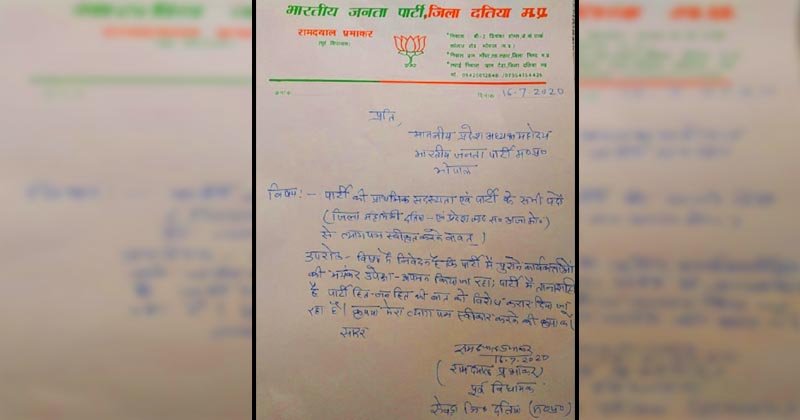 भारतीय जनता पार्टी, जिला दतिया म.प्र.
रामदयाल प्रभाकर
(पूर्व विधायक)
दिनांक 16-7-2020
प्रति,
माननीय प्रदेश अध्यक्ष महोदय
भारतीय जनता पार्टी म०प्र०
भोपाल
विषय:- पार्टी की प्राथमिक सदस्यता एवं पार्टी के सभी पदों
(जिला महामंत्री दतिया - एवं प्रदेश
से त्यागपत्र स्वीकृत करने बावत्)
उपरोक्त - विषय में निवेदन है कि पार्टी में पुराने कार्यकर्ताओं
की भयंकर उपेक्षा - अपमान किया जा रहा। पार्टी में तानाशाही
है पार्टी हित-जन हित की बात को विरोध करार दिया जा
रहा है। कृपया मेरा त्याग पत्र स्वीकार करने की कृपा करें
सादर
16-7-2020
(रामदयाल प्रभाकर)
पूर्व विधायक
सेवढ़ा जिला दतिया (म०प्र०)